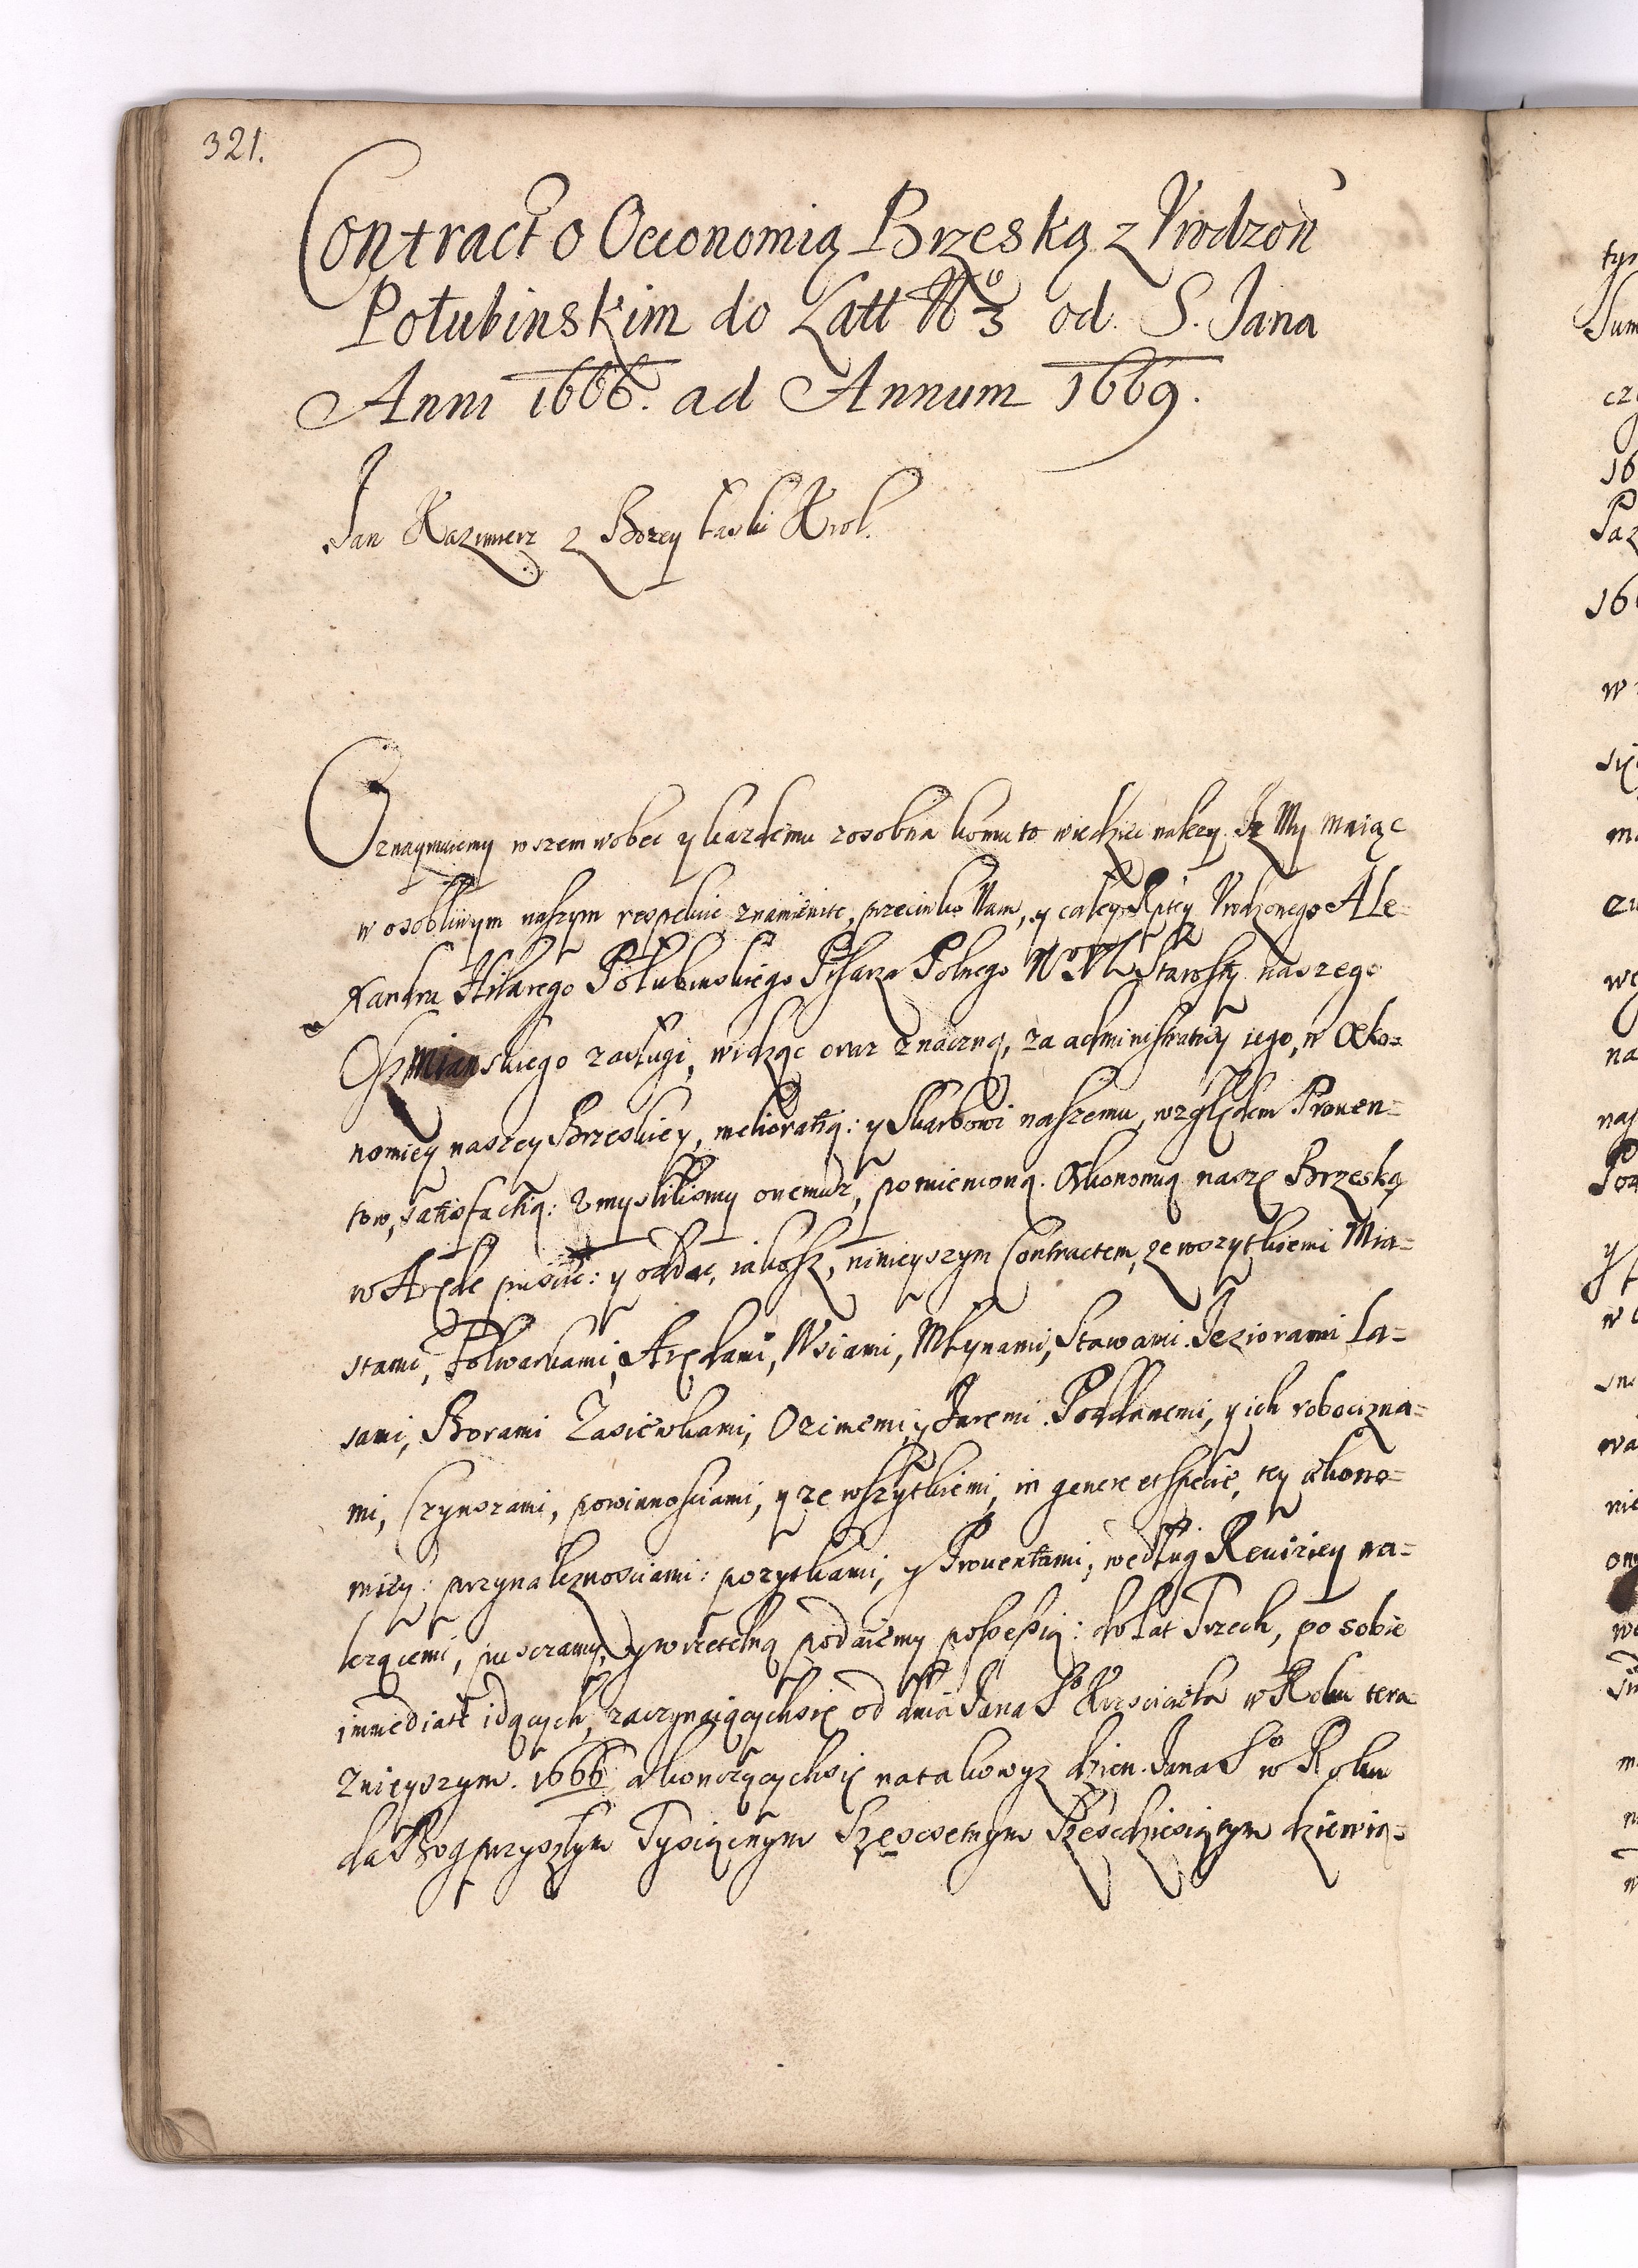 321.
Contract o Oeconomią Brzeską z Vrodzon
Połubinskim do Latt No 3 od. S. Jana
Anni 1666. ad Annum 1669.
Jan Kazimierz z Bozey łaski Krol.
Oznaymuiemy wszem wobec y kazdemu zosobna komu to wiedziec nalezy. Iz My maiąc
w osobliwym naszym respekcie znamienite, przeciwko Nam, y całey Rptey Vrodzonego Ale-
xandra Hilarego Połubinskiego Pisarza Polnego WXL Starosty naszego
Oszmianskiego zasługi, widząc oraz znaczną, za administratiey iego, w Œko-
nomiey naszey Brzeskiey, melioratią: y Skarbowi naszemu, względem Prouen-
tow, satisfactią: Vmyslilismy onemuz, pomienioną Œkonomią naszę Brzeską
w Arędę puscic: y oddac, iakosz, ninieyszym Contractem, ze wszytkiemi Mia-
stami, Folwarkami, Arędami, Wsiami, Młynami, Stawami Jeziorami La-
sami, Borami Zasiewkami, Ozimemi, y Jaremi Poddanemi, y ich robocizna-
mi, Czynszami, powinnosciami, y ze wszytkiemi, in genere et specie, tey œkono-
miey: przynaleznosciami: pozytkami, y Prouentami, według Reuiziey na-
lezącemi, puszczamy, y w rzetelną podaiemy possessią: do lat Trzech, po sobie
immediate idących, zaczynaiącychsię od dnia Jana So Krzciciela w Roku tera
znieyszym. 1666 a konczącychsię na takowyz dzien Jana So w Roku
da Bog przyszłym Tysiącnym Szescsetnym Szescdziesiątym dziewią-
tyn
Sum
cz
16
P
Paz
16
w
się
ma
w
na
naj
Po
y
w
wa
nie
on
we
m
w